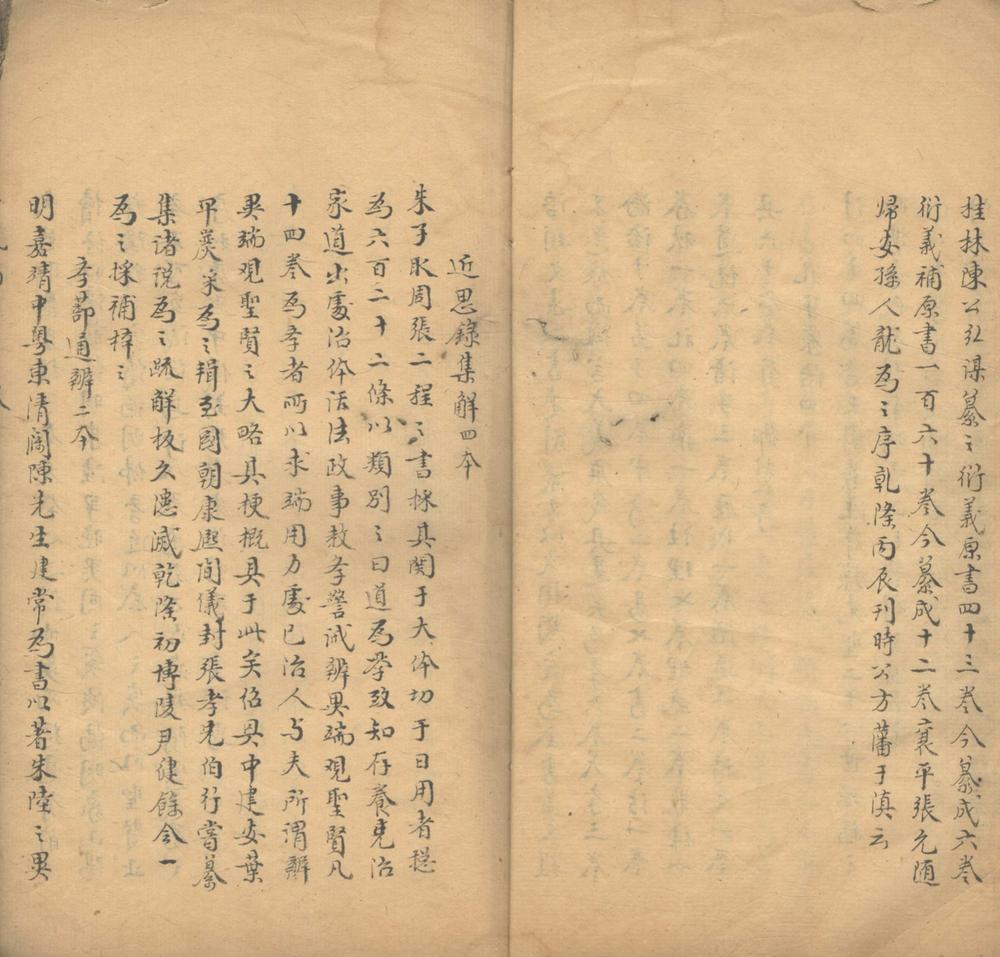 桂林陳公弘谋纂之衍義原書四十三卷今纂成六卷
衍義補原書一百六十卷今纂成十二卷襄平張允随
帰安孫人龍為之序乾隆丙辰刊時公方藩于滇云
近思錄集解四本
朱子取周張二程之書採其関于大体切于日用者
為六百二十二條以類别之曰道為孝致知存養克治
家道出處治体治法政事教孝警诫辨異端覌聖賢凡
十四卷為孝者所以求端用力處己治人与夫所谓辨
異端覌聖賢之大略具梗概具于此矣伯
中建安葉
平
采為之辑至國朝康熙间儀封張孝先伯行嘗纂
集诸説為之疏解板久漶滅乾隆初博陵尹健餘会一
為之採補梓之
孝蔀通辨二本
明嘉靖中粤東清闌陳先生建常為書以著朱陸之異